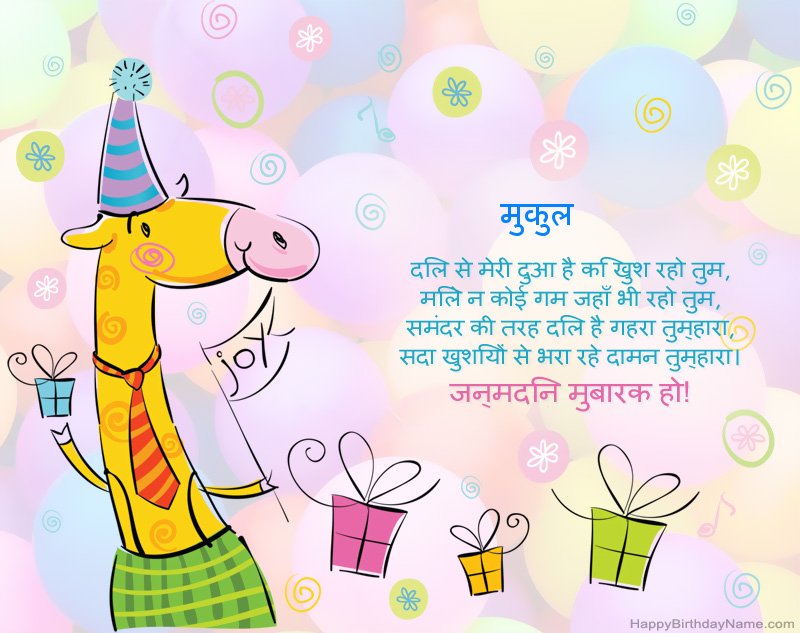 मुकुल
दलि से मेरी दुआ है कि खुश रहो तुम,
मलिे न कोई गम जहाँ भी रहो तुम,
समंदर की तरह दलि है गहरा तुम्हारा,
सदा खुशयिों से भरा रहे दामन तुम्हारा।
जन्मदनि मुबारक हो!
joy
HappyBirthdayName.com